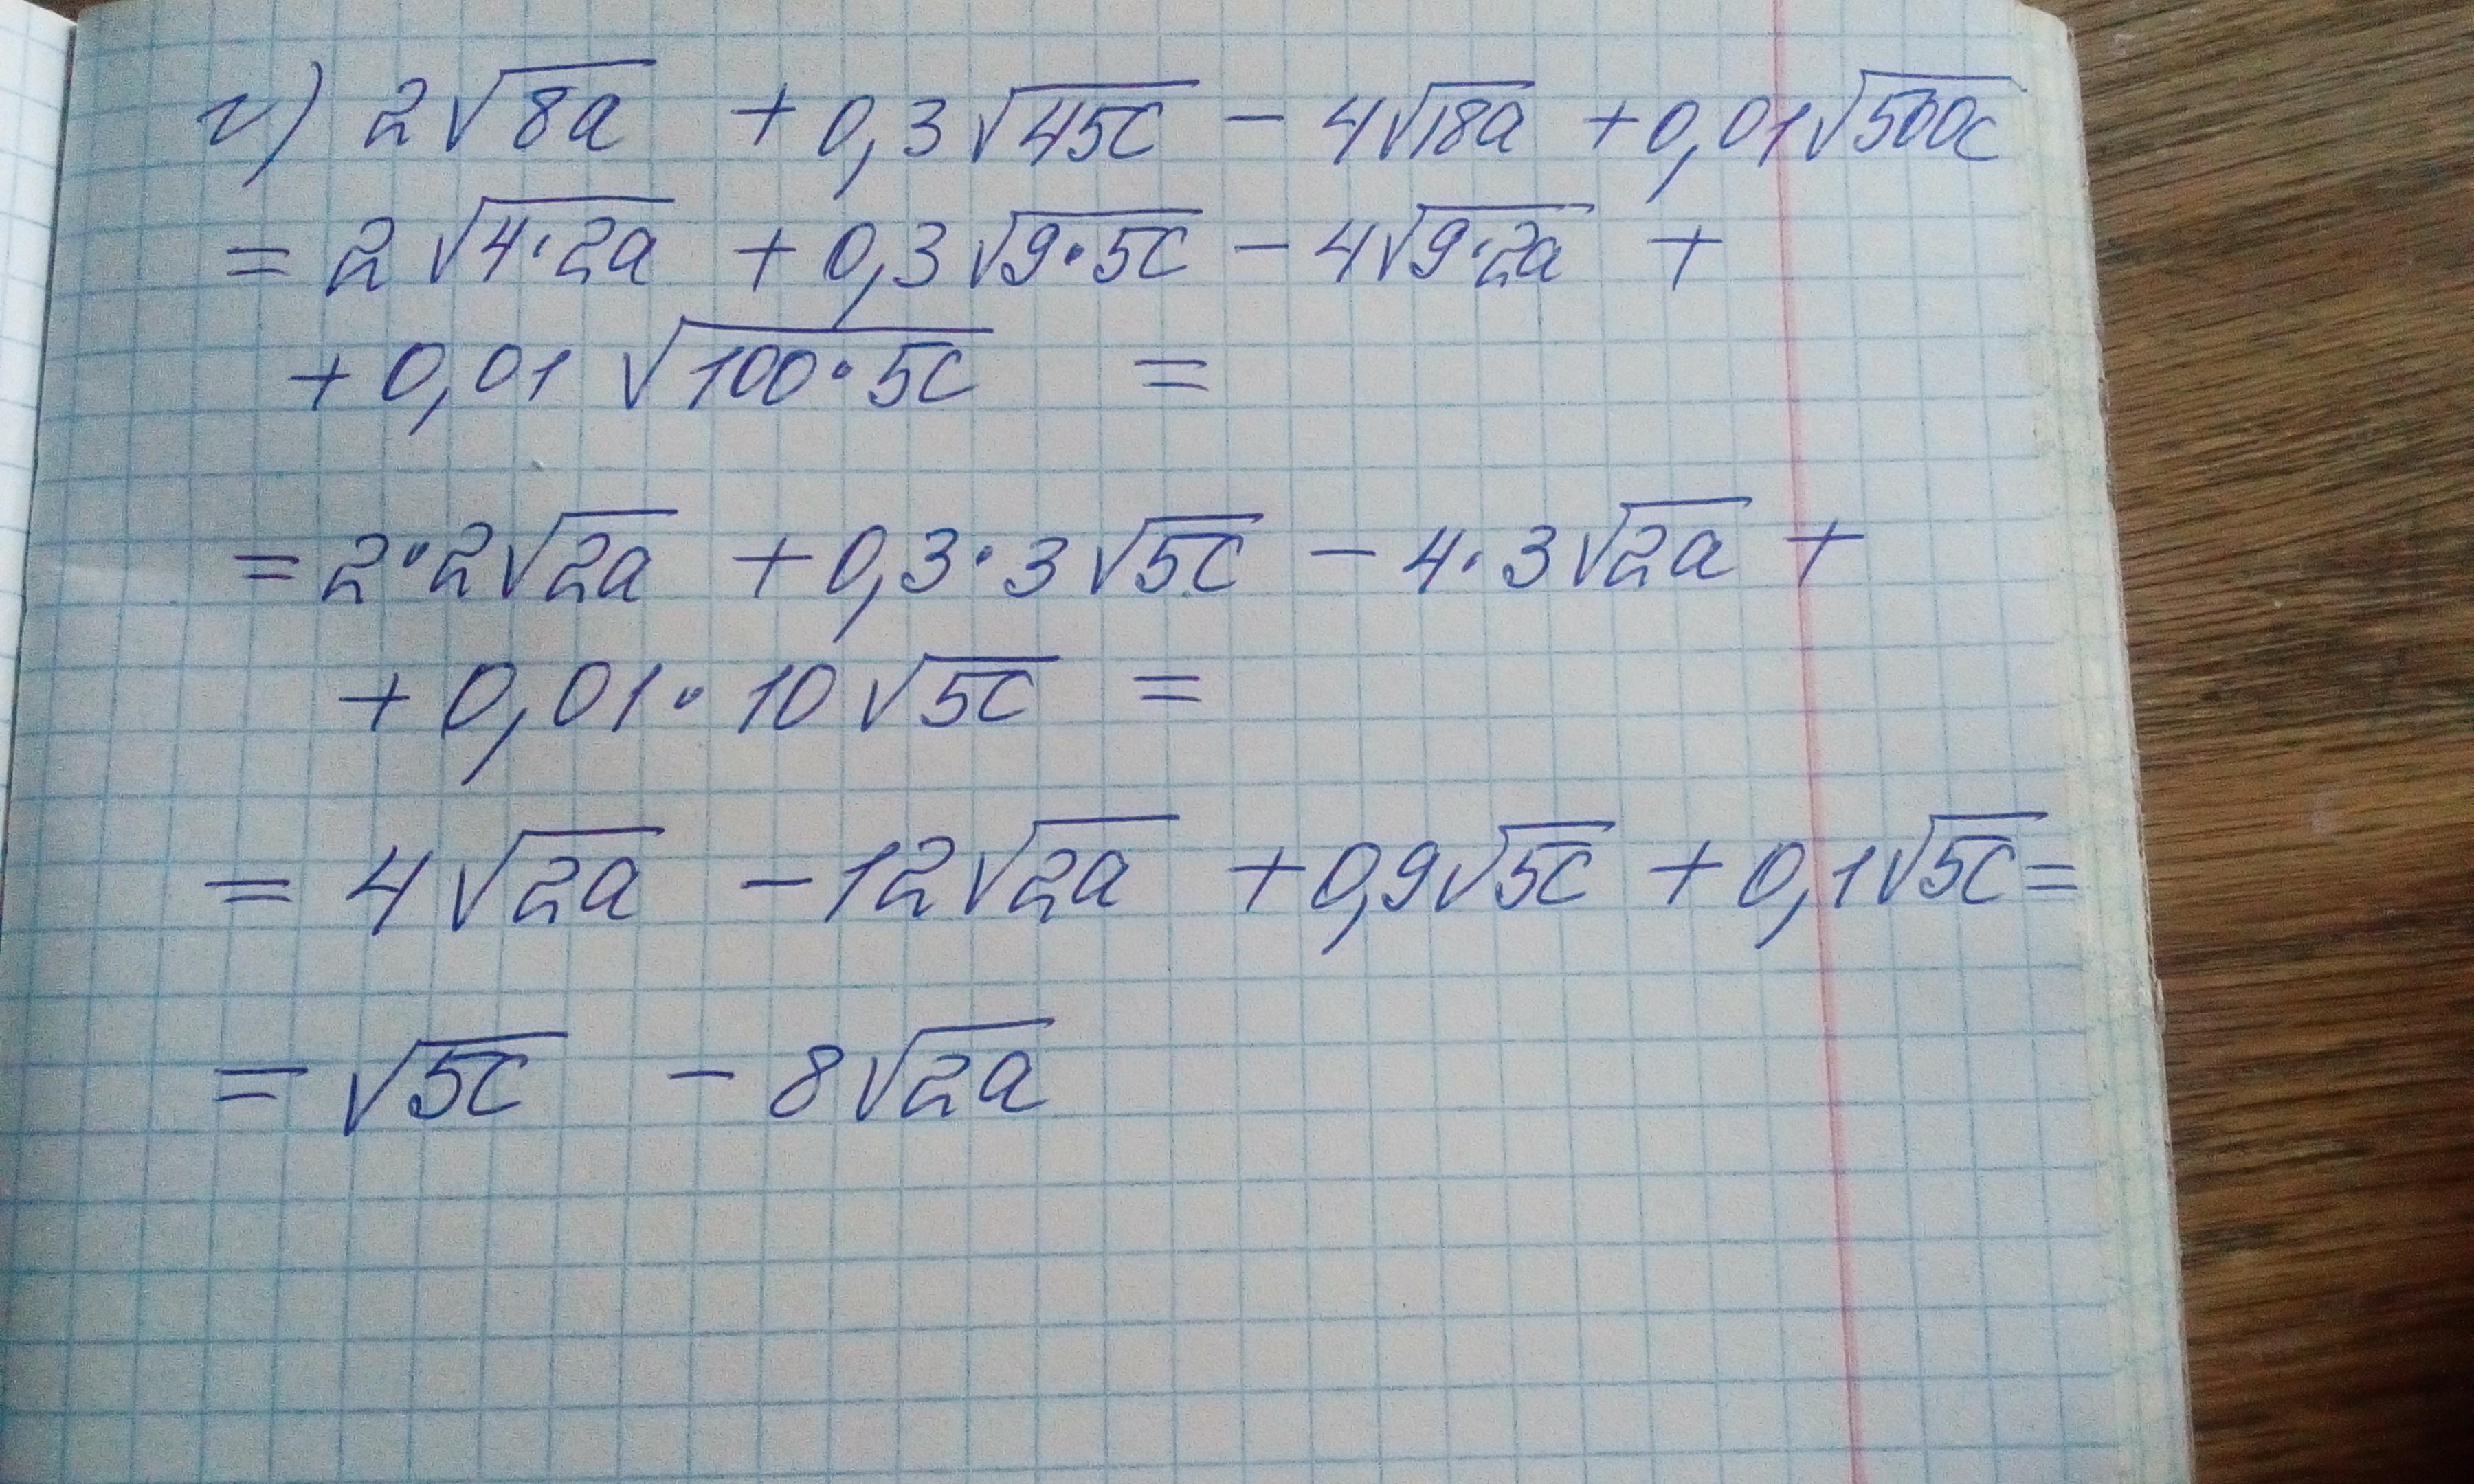 г) 2√8a + 0,3√45c − 4√18a + 0,01√500c
= 2√4·2a + 0,3√9·5c − 4√9·2a +
+ 0,01√100·5c =
= 2·2√2a + 0,3·3√5c − 4·3√2a +
+ 0,01·10√5c =
= 4√2a − 12√2a + 0,9√5c + 0,1√5c =
= √5c − 8√2a